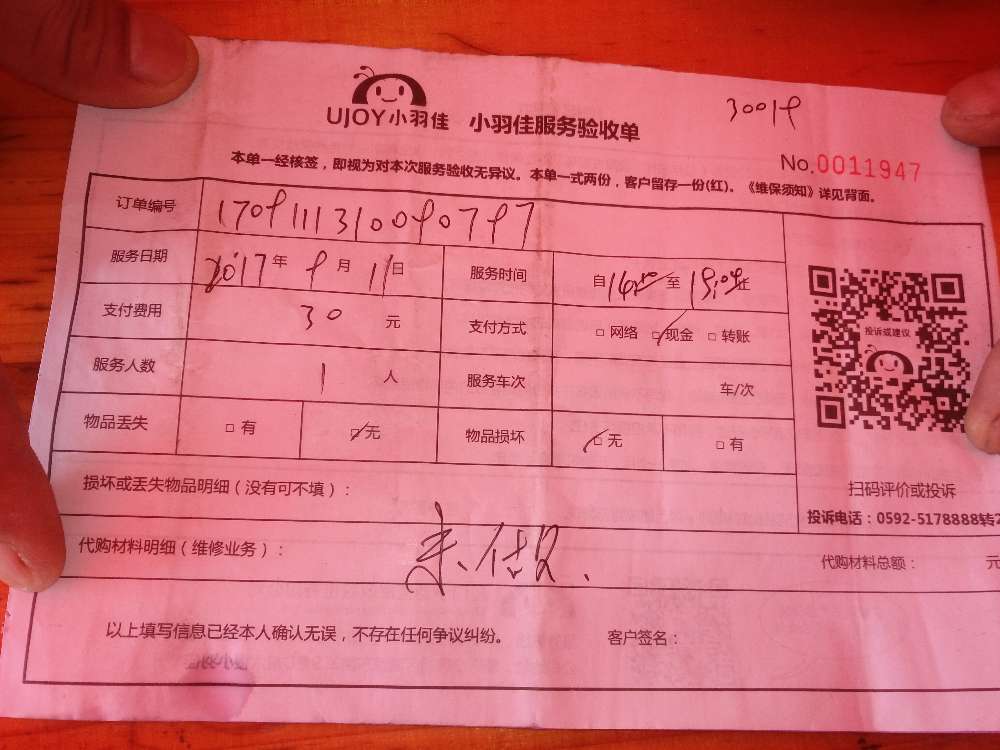 UJOY小羽佳 小羽佳服务验收单
No.0011947
本单一经核签，即视为对本次服务验收无异议。本单一式两份，客户留存一份(红)。《维保须知》详见背面。
订单编号
服务日期 2017年9月11日 服务时间 自 至
支付费用 30 元 支付方式 □ 网络 □ 现金 □ 转账
服务人数 1 人 服务车次 车/次
物品丢失 □ 有 □ 无 物品损坏 □ 无 □ 有
投诉或建议
扫码评价或投诉
投诉电话：0592-5178888转2
损坏或丢失物品明细（没有可不填）：
代购材料明细（维修业务）： 代购材料总额： 元
以上填写信息已经本人确认无误，不存在任何争议纠纷。 客户签名：